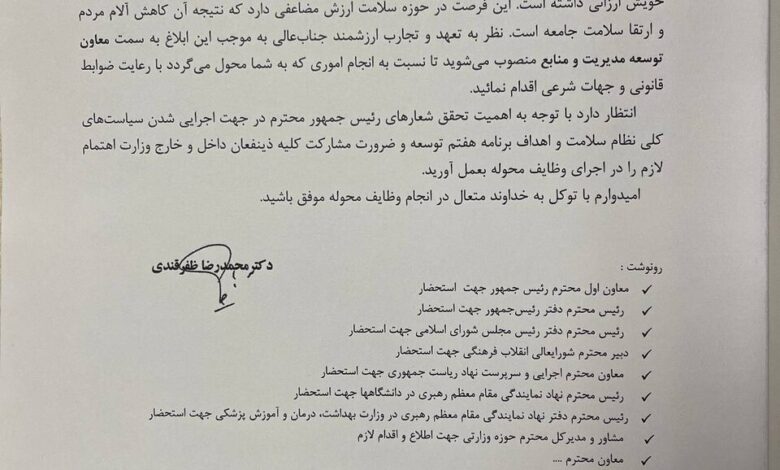 خویش ارزانی داشته است. این فرصت در حوزه سلامت ارزش مضاعفی دارد که نتیجه آن کاهش آلام مردم
و ارتقا سلامت جامعه است. نظر به تعهد و تجارب ارزشمند جناب‌عالی به موجب این ابلاغ به سمت معاون
توسعه مدیریت و منابع منصوب می‌شوید تا نسبت به انجام اموری که به شما محول می‌گردد با رعایت ضوابط
قانونی و جهات شرعی اقدام نمائید.
انتظار دارد با توجه به اهمیت تحقق شعارهای رئیس جمهور محترم در جهت اجرایی شدن سیاست‌های
کلی نظام سلامت و اهداف برنامه هفتم توسعه و ضرورت مشارکت کلیه ذینفعان داخل و خارج وزارت اهتمام
لازم را در اجرای وظایف محوله بعمل آورید.
امیدوارم با توکل به خداوند متعال در انجام وظایف محوله موفق باشید.
دکترمحمدرضا ظفرقندی
رونوشت :
✓ معاون اول محترم رئیس جمهور جهت استحضار
✓ رئیس محترم دفتر رئیس‌جمهور جهت استحضار
✓ رئیس محترم دفتر رئیس مجلس شورای اسلامی جهت استحضار
✓ دبیر محترم شورایعالی انقلاب فرهنگی جهت استحضار
✓ معاون محترم اجرایی و سرپرست نهاد ریاست جمهوری جهت استحضار
✓ رئیس محترم نهاد نمایندگی مقام معظم رهبری در دانشگاهها جهت استحضار
✓ رئیس محترم دفتر نهاد نمایندگی مقام معظم رهبری در وزارت بهداشت، درمان و آموزش پزشکی جهت استحضار
✓ مشاور و مدیرکل محترم حوزه وزارتی جهت اطلاع و اقدام لازم
✓ معاون محترم ....